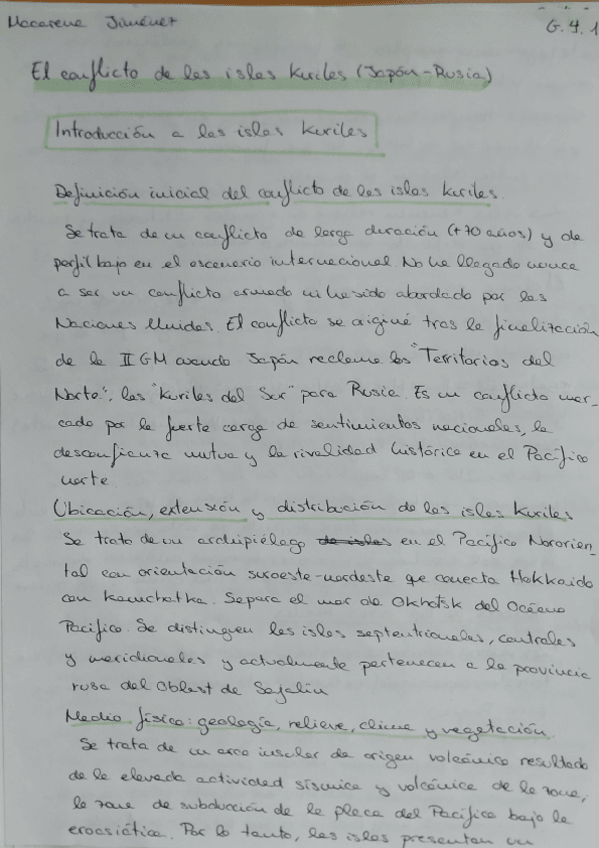 Macarena Jiménez G.4.1
El conflicto de las islas Kuriles (Japón-Rusia)
Introducción a las islas Kuriles
Definición inicial del conflicto de las islas Kuriles.
Se trata de un conflicto de larga duración (+70 años) y de
perfil bajo en el escenario internacional. No ha llegado nunca
a ser un conflicto armado ni ha sido abordado por las
Naciones Unidas. El conflicto se originó tras la finalización
de la II GM cuando Japón reclama los "Territorios del
Norte", las "Kuriles del Sur" para Rusia. Es un conflicto mar-
cado por la fuerte carga de sentimientos nacionales, la
desconfianza mutua y la rivalidad histórica en el Pacífico
norte.
Ubicación, extensión y distribución de las islas Kuriles
Se trata de un archipiélago de islas en el Pacífico Nororien-
tal con orientación suroeste-nordeste que conecta Hokkaido
con Kamchatka. Separa el mar de Okhotsk del Océano
Pacífico. Se distinguen las islas septentrionales, centrales
y meridionales y actualmente pertenecen a la provincia
rusa del Oblast de Sajalín
Medio físico: geología, relieve, clima y vegetación
Se trata de un arco insular de origen volcánico resultado
de la elevada actividad sísmica y volcánica de la zona,
la zona de subducción de la placa del Pacífico bajo la
eroasiática. Por lo tanto, las islas presentan un